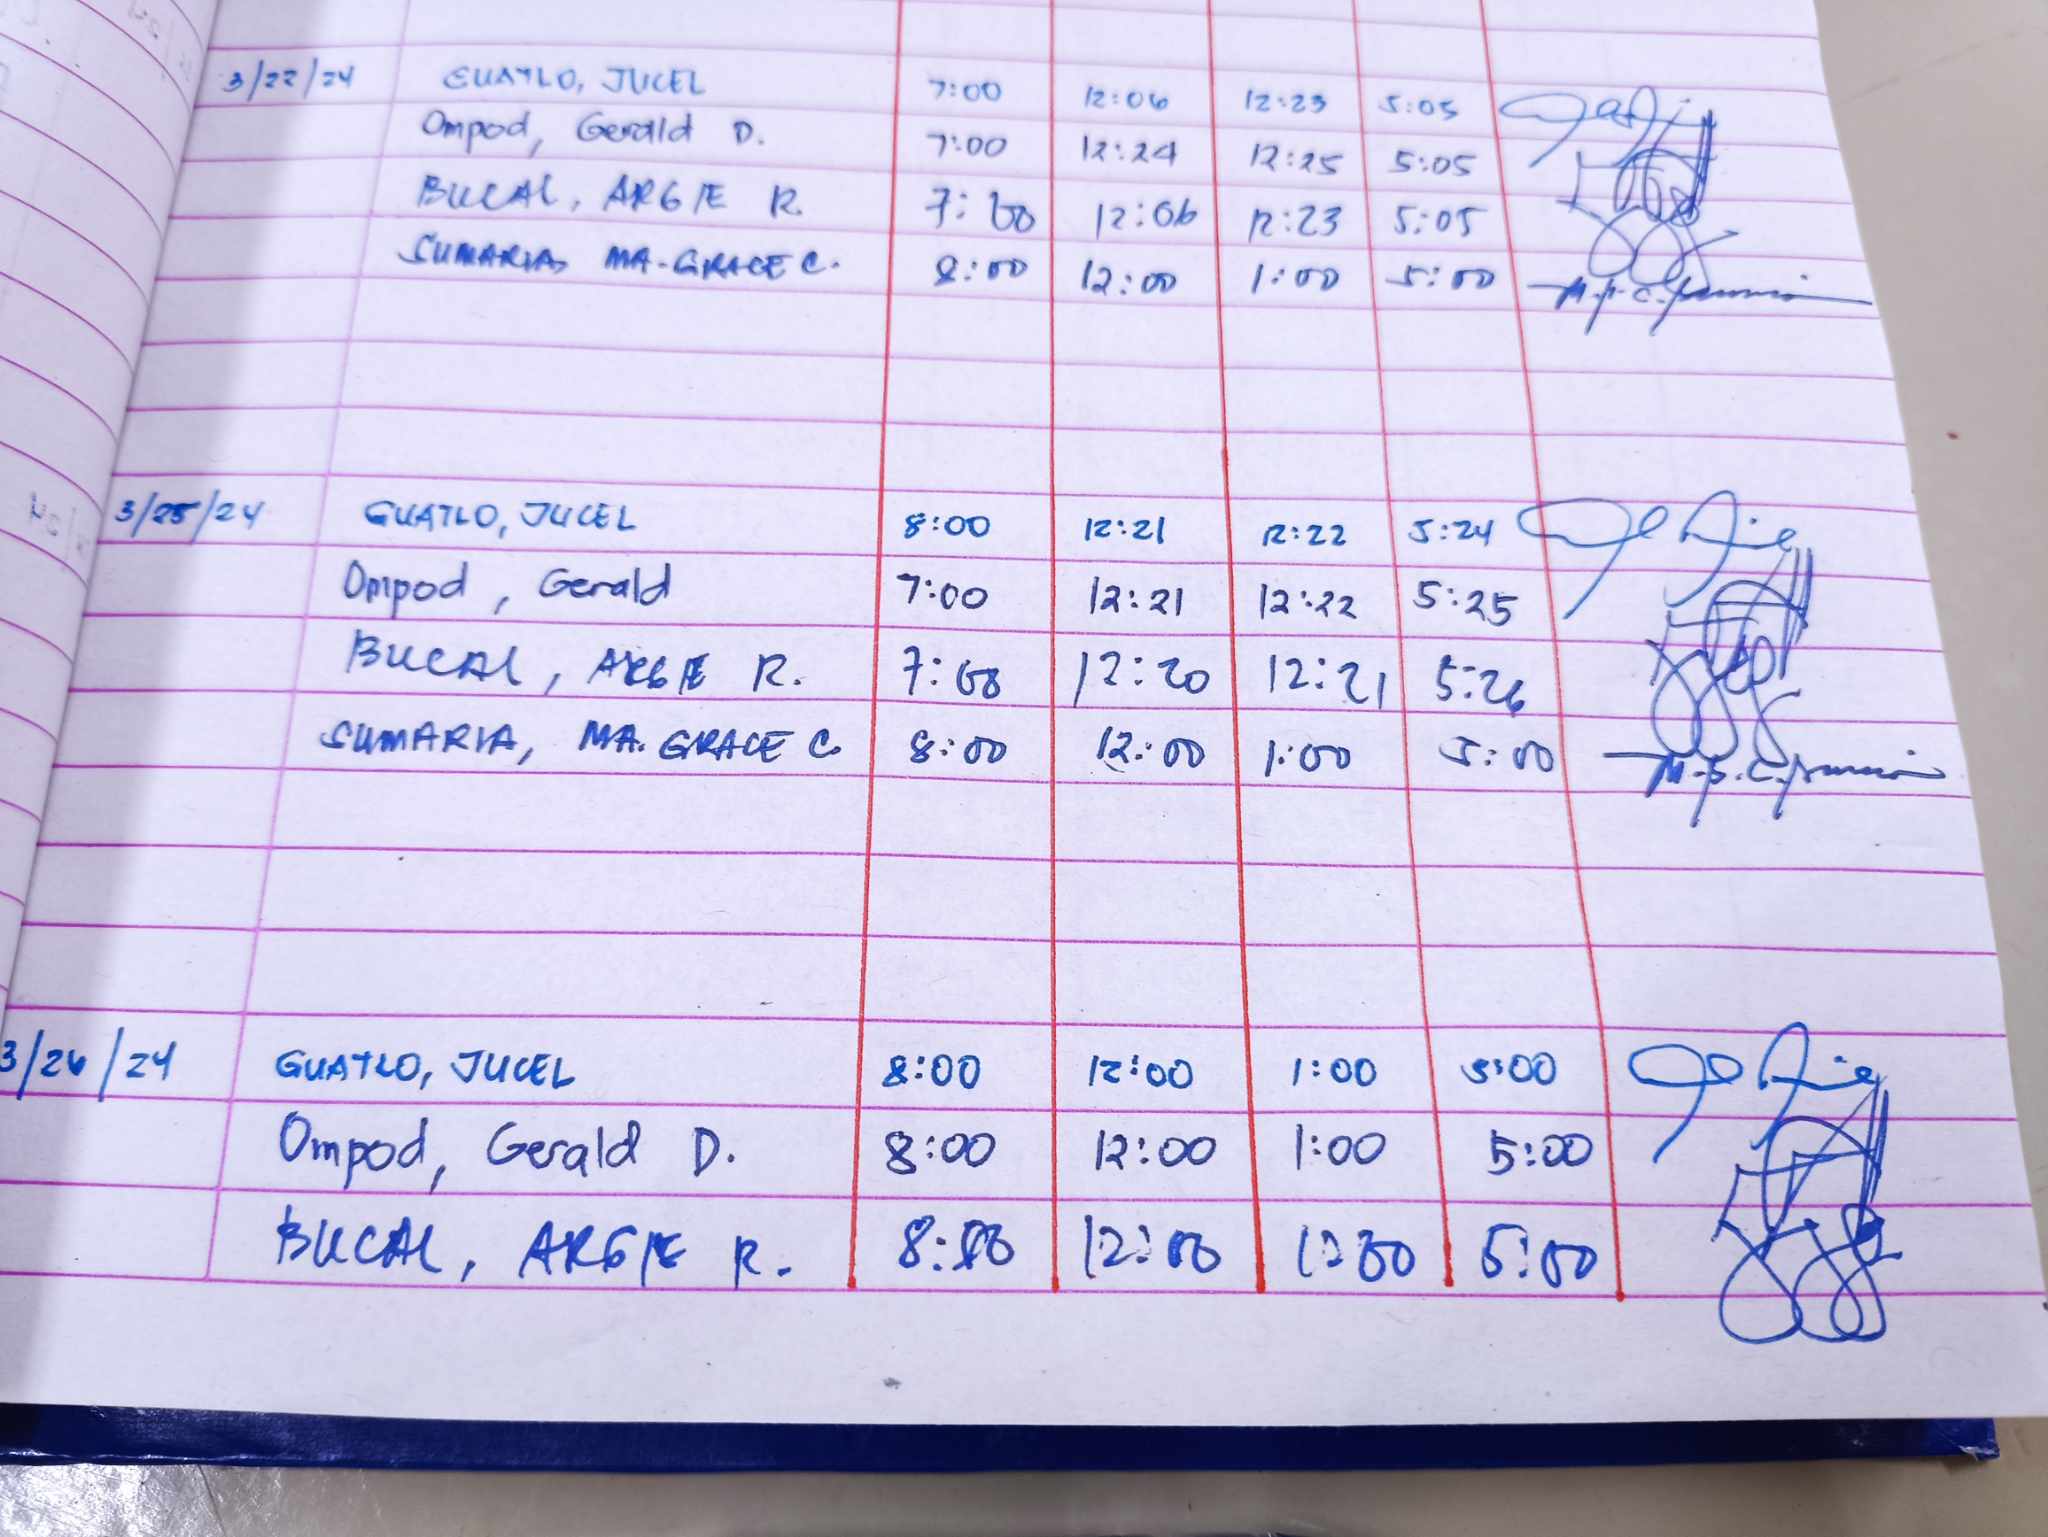 3/22/24 GUATLO, JUCEL 7:00 12:06 12:23 5:05
Ompod, Gerald D. 7:00 12:24 12:25 5:05
BUCAL, ARGIE R. 7:00 12:06 12:23 5:05
SUMARIA, MA. GRACE C. 8:00 12:00 1:00 5:00
3/25/24 GUATLO, JUCEL 8:00 12:21 12:22 5:24
Ompod, Gerald 7:00 12:21 12:22 5:25
BUCAL, ARGIE R. 7:00 12:20 12:21 5:26
SUMARIA, MA. GRACE C. 8:00 12:00 1:00 5:00
3/26/24 GUATLO, JUCEL 8:00 12:00 1:00 5:00
Ompod, Gerald D. 8:00 12:00 1:00 5:00
BUCAL, ARGIE R. 8:00 12:00 1:00 5:00